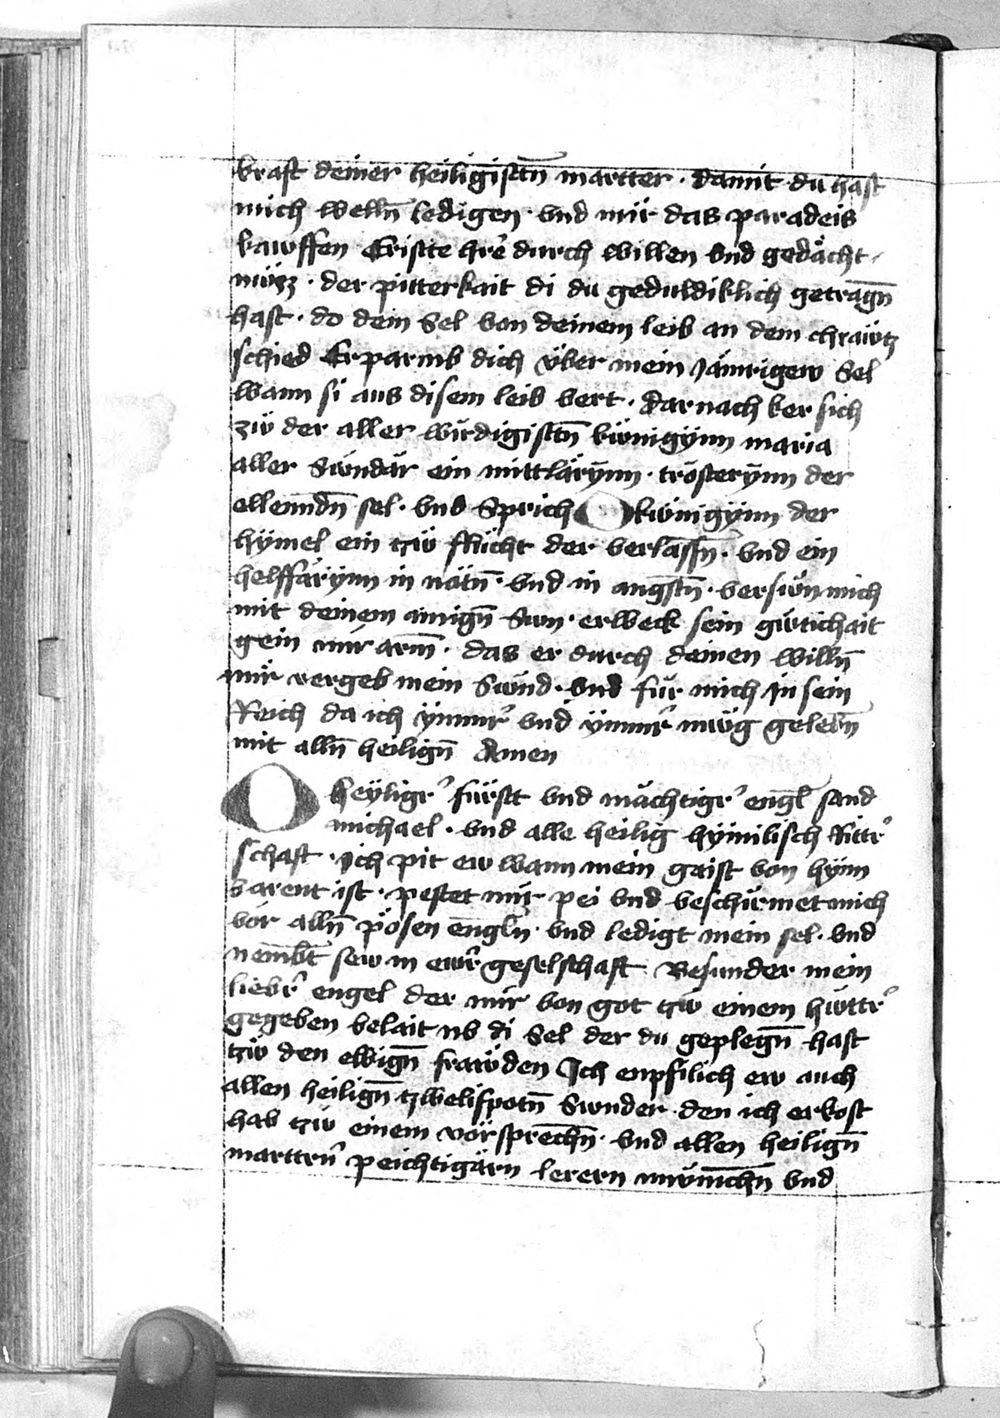 kraft deiner heiligistn̄ martter · damit du hast
mich welln̄ ledigen · vnd mir das paradeis
kawffen Cristte hr̄e durch willen vnd gedächt-
nüzz · der pitterkait di du geduldiklich getragn̄
hast · do dein Sel von deinem leib an dem chräwtz
schied Erparmb dich vber mein Jämrigew Sel
wann si aus disem leib vert · dar nach ker sich
zw der aller wirdigistn̄ kwnigÿnn maria
aller Swndär ein mittlärÿnn · trosterÿnn der
ellenndn̄ sel · vnd Sprich O kwnigÿnn der
hÿmel ein tzw flucht der verlassn̄ · vnd ein
helffärÿnn in nötn̄ · vnd in angstn̄ · verswn mich
mit deinem ainign̄ Swn · erweck sein gwtichait
gein mir arm̄ · das er durch deinen willn̄
mir vergeb mein Swnd · vnd für mich in sein
Reich da ich ÿmmer vnd ÿmmer mwg gelebn̄
mit alln̄ heilign̄ Amen
O heÿliger fürstt vnd mächtiger engl sand
michael · vnd alle heilig hÿmilisch Ritter
schaft · Ich pit ew wann mein gaist von hÿnn
varent ist · pestet mir pei vnd beschirmet mich
vor alln̄ pösen engln̄ · vnd ledigt mein sel · vnd
nembt sew in ewr geselschaft Besunder mein
lieber engel der mir von got tzw einem hwtter
gegeben belait ub di Sel der du geplegn̄ hast
tzw den ewign̄ frawden Ich enpfilich ew auch
allen heilign̄ tzwelifpotn̄ Swnder den ich erkost
hab tzw einem vorsprechn̄ · vnd allen heilign̄
marttrn̄ peichtigärn lerern mwnichn̄ vnd